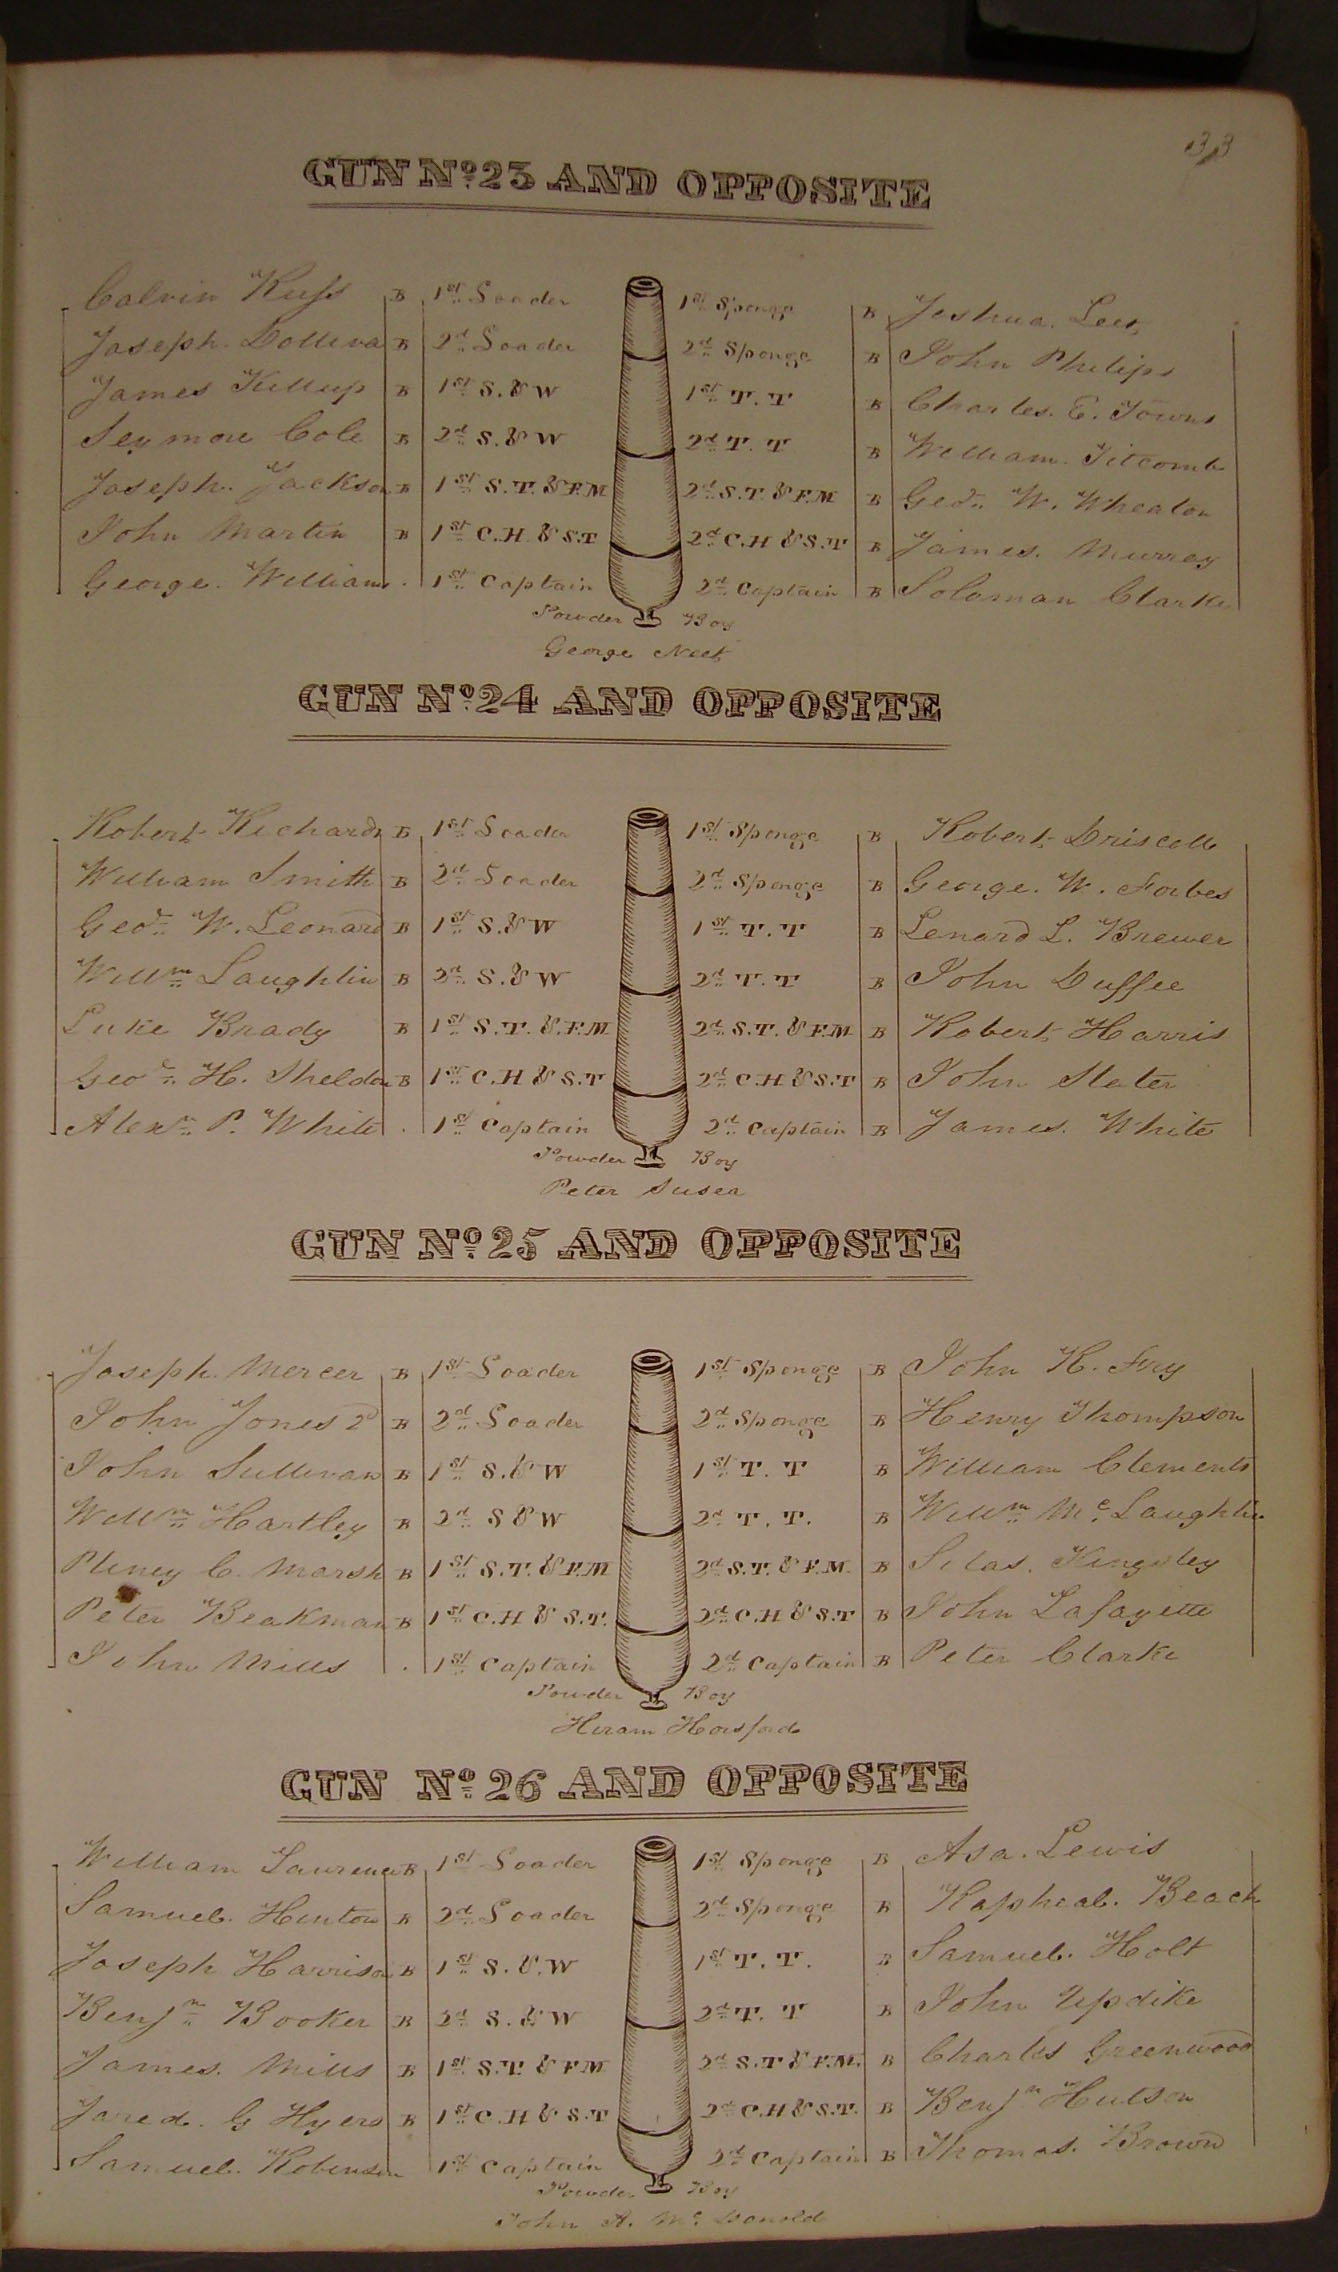 33
GUN No. 23 AND OPPOSITE
Calvin Russ B 1st Loader 1st Sponge B Joshua. Lees
Joseph. Dolliva B 2d Loader 2d Sponge B John Philips
James Killup B 1st S. & W 1st T. T B Charles. E. Towns
Seymour Cole B 2d S. & W 2d T. T B William. Titcomb
Joseph. Jackson B 1st S. T. & F.M 2d S. T. & F.M B Geo. W. Wheaton
John Martin B 1st C. H. & S.T 2d C. H & S.T B James. Murray
George. Williams . 1st Captain 2d Captain B Soloman Clarke
Powder Boy
George
GUN No. 24 AND OPPOSITE
Robert Richards B 1st Loader 1st Sponge B Robert Driscoll
William Smith B 2d Loader 2d Sponge B George. W. Forbes
Geo. W. Leonard B 1st S. & W 1st T. T B Lenard L. Brewer
Willm Laughlin B 2d S. & W 2d T. T B John Duffee
Luke Brady B 1st S. T. & F.M 2d S. T. & F.M B Robert Harris
Geo. H. Sheldon B 1st C. H & S. T 2d C. H & S T B John Slater
Alexr. P. White . 1st Captain 2d Captain B James. White
Powder Boy
Peter Susea
GUN No. 25 AND OPPOSITE
Joseph. Mercer B 1st Loader 1st Sponge B John H. Fry
John Jones 2d B 2d Loader 2d Sponge B Henry Thompson
John Sullivan B 1st S. & W 1st T. T B William Clements
Willm Hartley B 2d S & W 2d T. T. B Willm Mc. Laughlin
Pliney C. Marsh B 1st S. T. & F.M 2d S. T. & F.M. B Silas. Kingsley
Peter Beakman B 1st C. H & S. T. 2d C. H & S T B John Lafayette
John Mills . 1st Captain 2d Captain B Peter Clarke
Powder Boy
Hiram Horsford
GUN No. 26 AND OPPOSITE
William Laurence B 1st Loader 1st Sponge B Asa. Lewis
Samuel. Hinton B 2d Loader 2d Sponge B Rapheal. Beach
Joseph Harrison B 1st S. &. W 1st T. T. B Samuel. Holt
Benjn Booker B 2d S. & W 2d T. T B John Updike
James. Mills B 1st S. T. & F M 2d S. T & F.M. B Charles Greenwood
Jared. G Hyers B 1st C. H & S T 2d C. H & S.T. B Benjn Hutson
Samuel. Robinson 1st Captain 2d Captain B Thomas. Brown
Powder Boy
John A. Mc. Donold